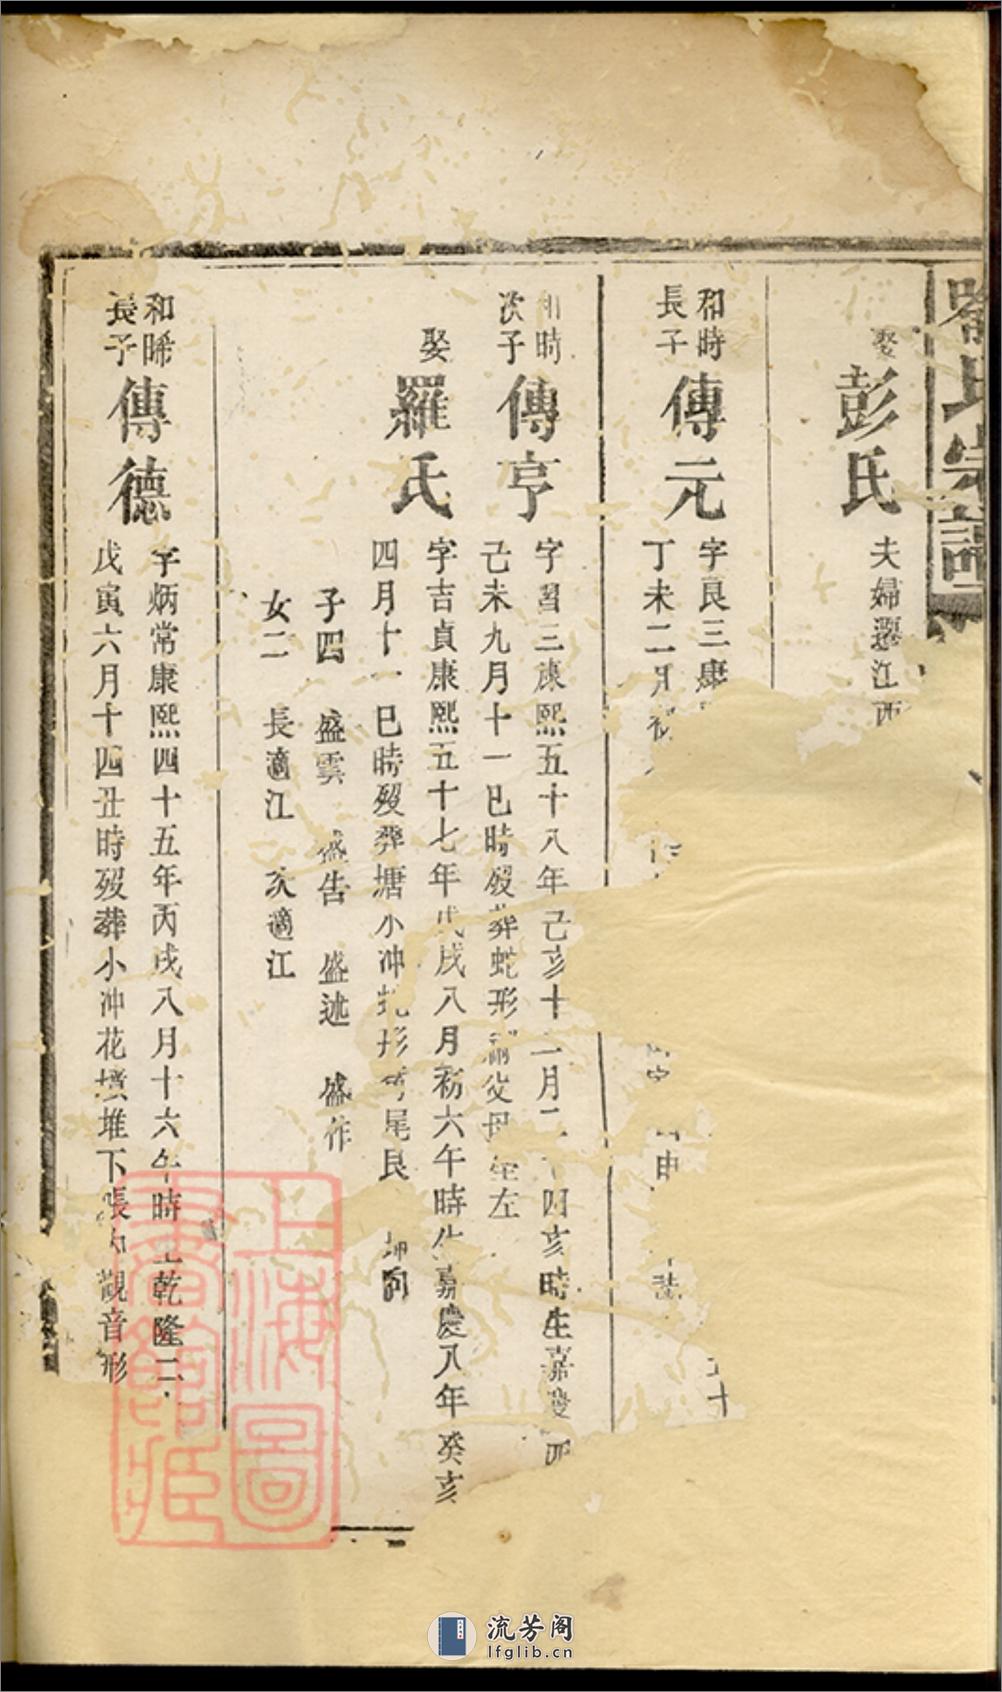 氏宗譜
娶彭氏 夫婦遷江西
和時長子傳元 字良三康
丁未二月初
申
十
時次子傳亨 字習三康熙五十八年己亥十二月二十四亥時生嘉慶四
己未九月十一巳時歿葬蛇形 父母 左
娶羅氏 字吉貞康熙五十七年戊戌八月初六午時生嘉慶八年癸亥
四月十一巳時歿葬塘小冲 形 尾艮 坤向
子四 盛雲 盛告 盛述 盛作
女二 長適江 次適江
和晞長子傳德 字炳常康熙四十五年丙戌八月十六午時 乾隆二
戊寅六月十四丑時歿葬小冲花墳堆下張 觀音形
上海圖書館藏
流芳阁
lfglib.cn